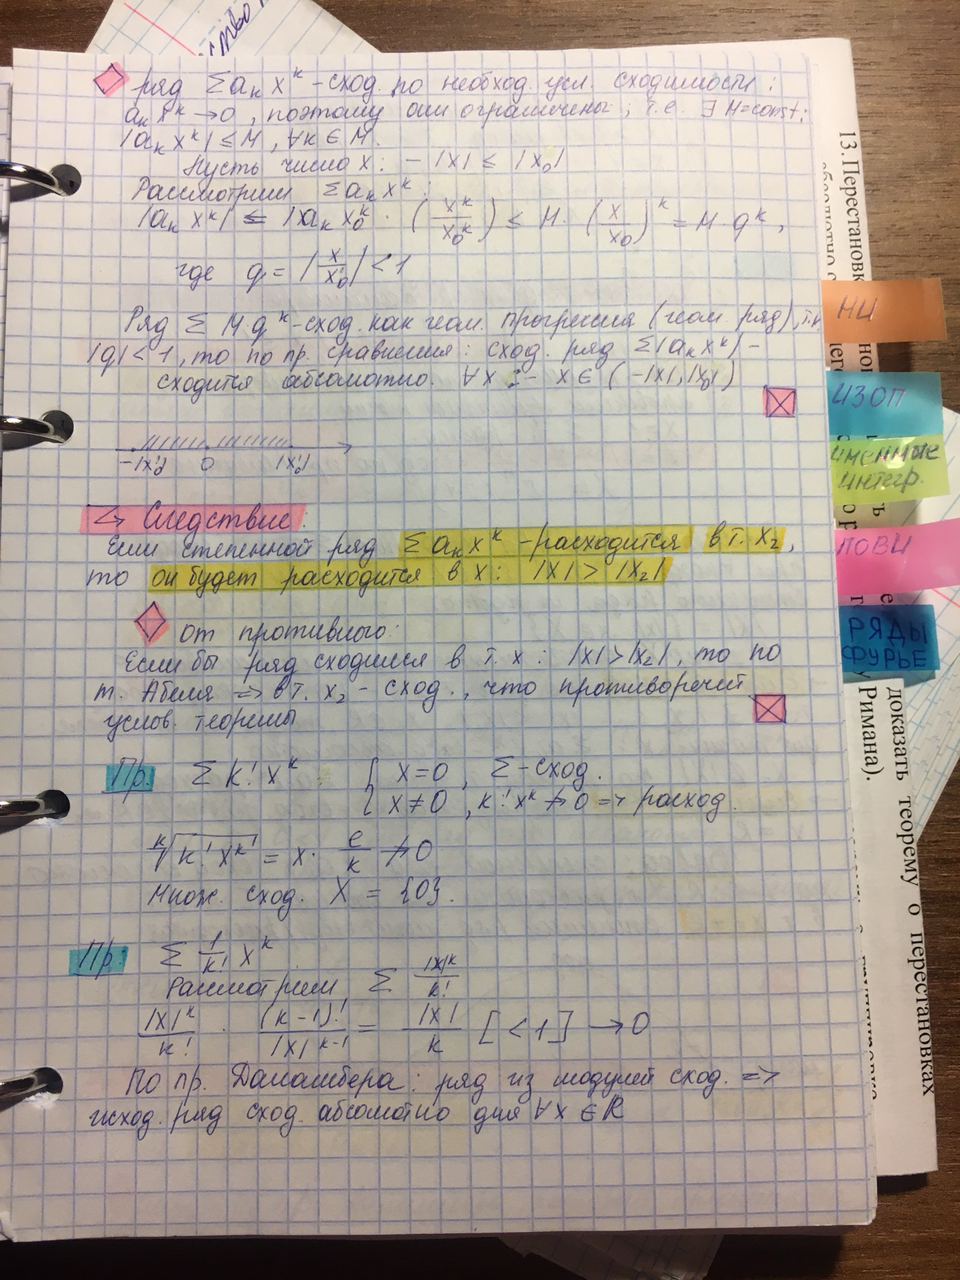 ряд Σ aₖ xᵏ - сход. по необход. усл. сходимости:
aₖ xᵏ → 0, поэтому они ограничены, т.е. ∃ M=const:
|aₖ xᵏ| ≤ M, ∀k ∈ M.
Пусть число x: - |x| ≤ |x₀|
Рассмотрим Σ aₖ xᵏ:
|aₖ xᵏ| ≤ |aₖ x₀ᵏ · (xᵏ/x₀ᵏ) ≤ M · (x/x₀)ᵏ = M · qᵏ,
где q = |x/x₀| < 1
Ряд Σ M·qᵏ - сход. как геом. прогрессия (геом. ряд), т.к.
|q| < 1, то по пр. сравнения: сход. ряд Σ|aₖ xᵏ| -
сходится абсолютно. ∀x :- x ∈ (-|x|, |x₀|)
-|x₀| 0 |x₀|
↳ Следствие:
Если степенной ряд Σ aₖ xᵏ - расходится в т. x₂,
то он будет расходится в x: |x| > |x₂|
от противного:
Если бы ряд сходился в т. x: |x| > |x₂|, то по
т. Абеля => в т. x₂ - сход., что противоречит
услов. теоремы
Пр. Σ k! xᵏ { x=0, Σ-сход.
{ x≠0, k! xᵏ ↛ 0 => расход.
ᵏ√(k! xᵏ) = x · e/k ↛ 0
Множ. сход. X = {0}.
Пр: Σ 1/k! xᵏ
Рассмотрим Σ |x|ᵏ/k!
|x|ᵏ/k! · (k-1)!/|x|ᵏ⁻¹ = |x|/k [<1] → 0
По пр. Даламбера: ряд из модулей сход. =>
исход. ряд сход. абсолютно для ∀x ∈ R
13. Перестановк
НИ
ИЗОП
именные
интегр.
ПОВИ
РЯДЫ
ФУРЬЕ
доказать теорему о перестановках
Римана).